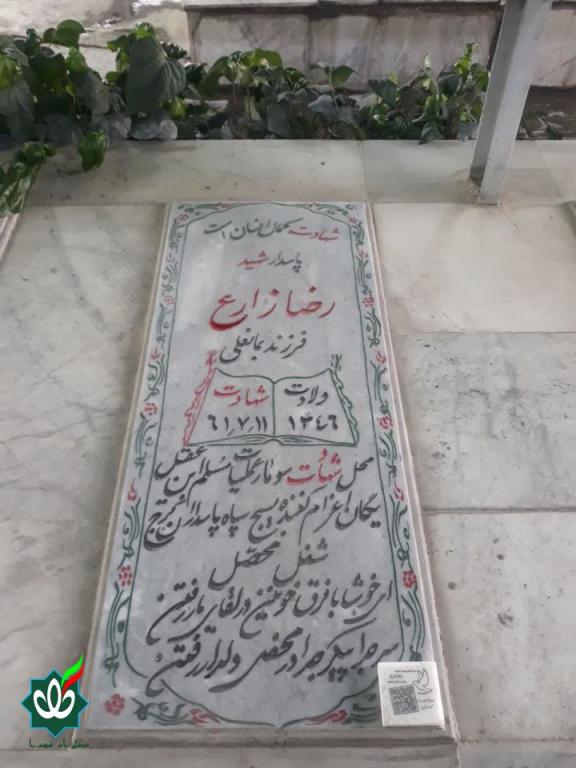 شهادت کمال انسان است
پاسدار شهید
رضا زارع
فرزند بمانعلی
ولادت ۱۳۴۶
شهادت ۶۱٫۷٫۱۱
محل شهادت سومار عملیات مسلم ابن عقیل
یگان اعزام کننده بسیج سپاه پاسداران کرج
شغل محصل
ای خوشا با فرق خونین در لقای یار رفتن
سر جدا پیکر جدا در محفل دلدار رفتن